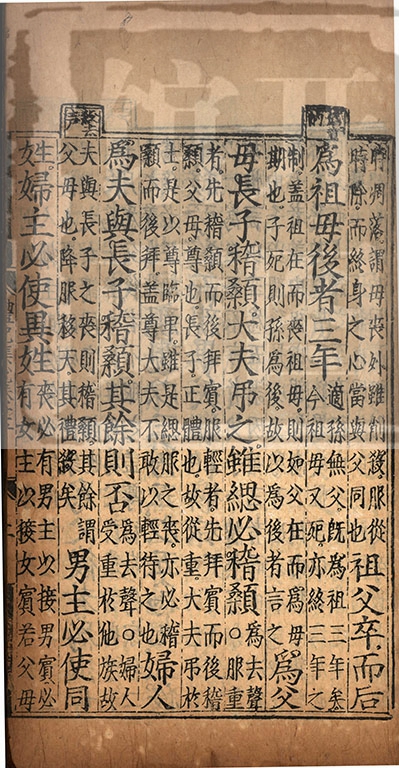 時凋落謂母喪外雖削殺服從
時除而終身之心當與父同也
祖父卒而后
為祖母後者三年
適孫無父既為祖三年矣
今祖母又死亦終三年之
制蓋祖在而喪祖母則如父在而為母
期也子死則孫為後故以為後者言之
為父
母長子稽顙大夫弔之雖緦必稽顙
為去聲○服重
者先稽顙而後拜賓服輕者先拜賓而後稽
顙父母尊也長子正體也故從重大夫弔於
士是以尊臨卑雖是緦服之喪亦必稽
顙而後拜蓋尊大夫不敢以輕待之也
婦人
為夫與長子稽顙其餘則否
為去聲○婦人
受重於他族故
夫與長子之喪則稽顙其餘謂
父母也降服移天其禮殺矣
男主必使同
婦主必使異姓
喪必有男主以接男賓必
有女主以接女賓若父母